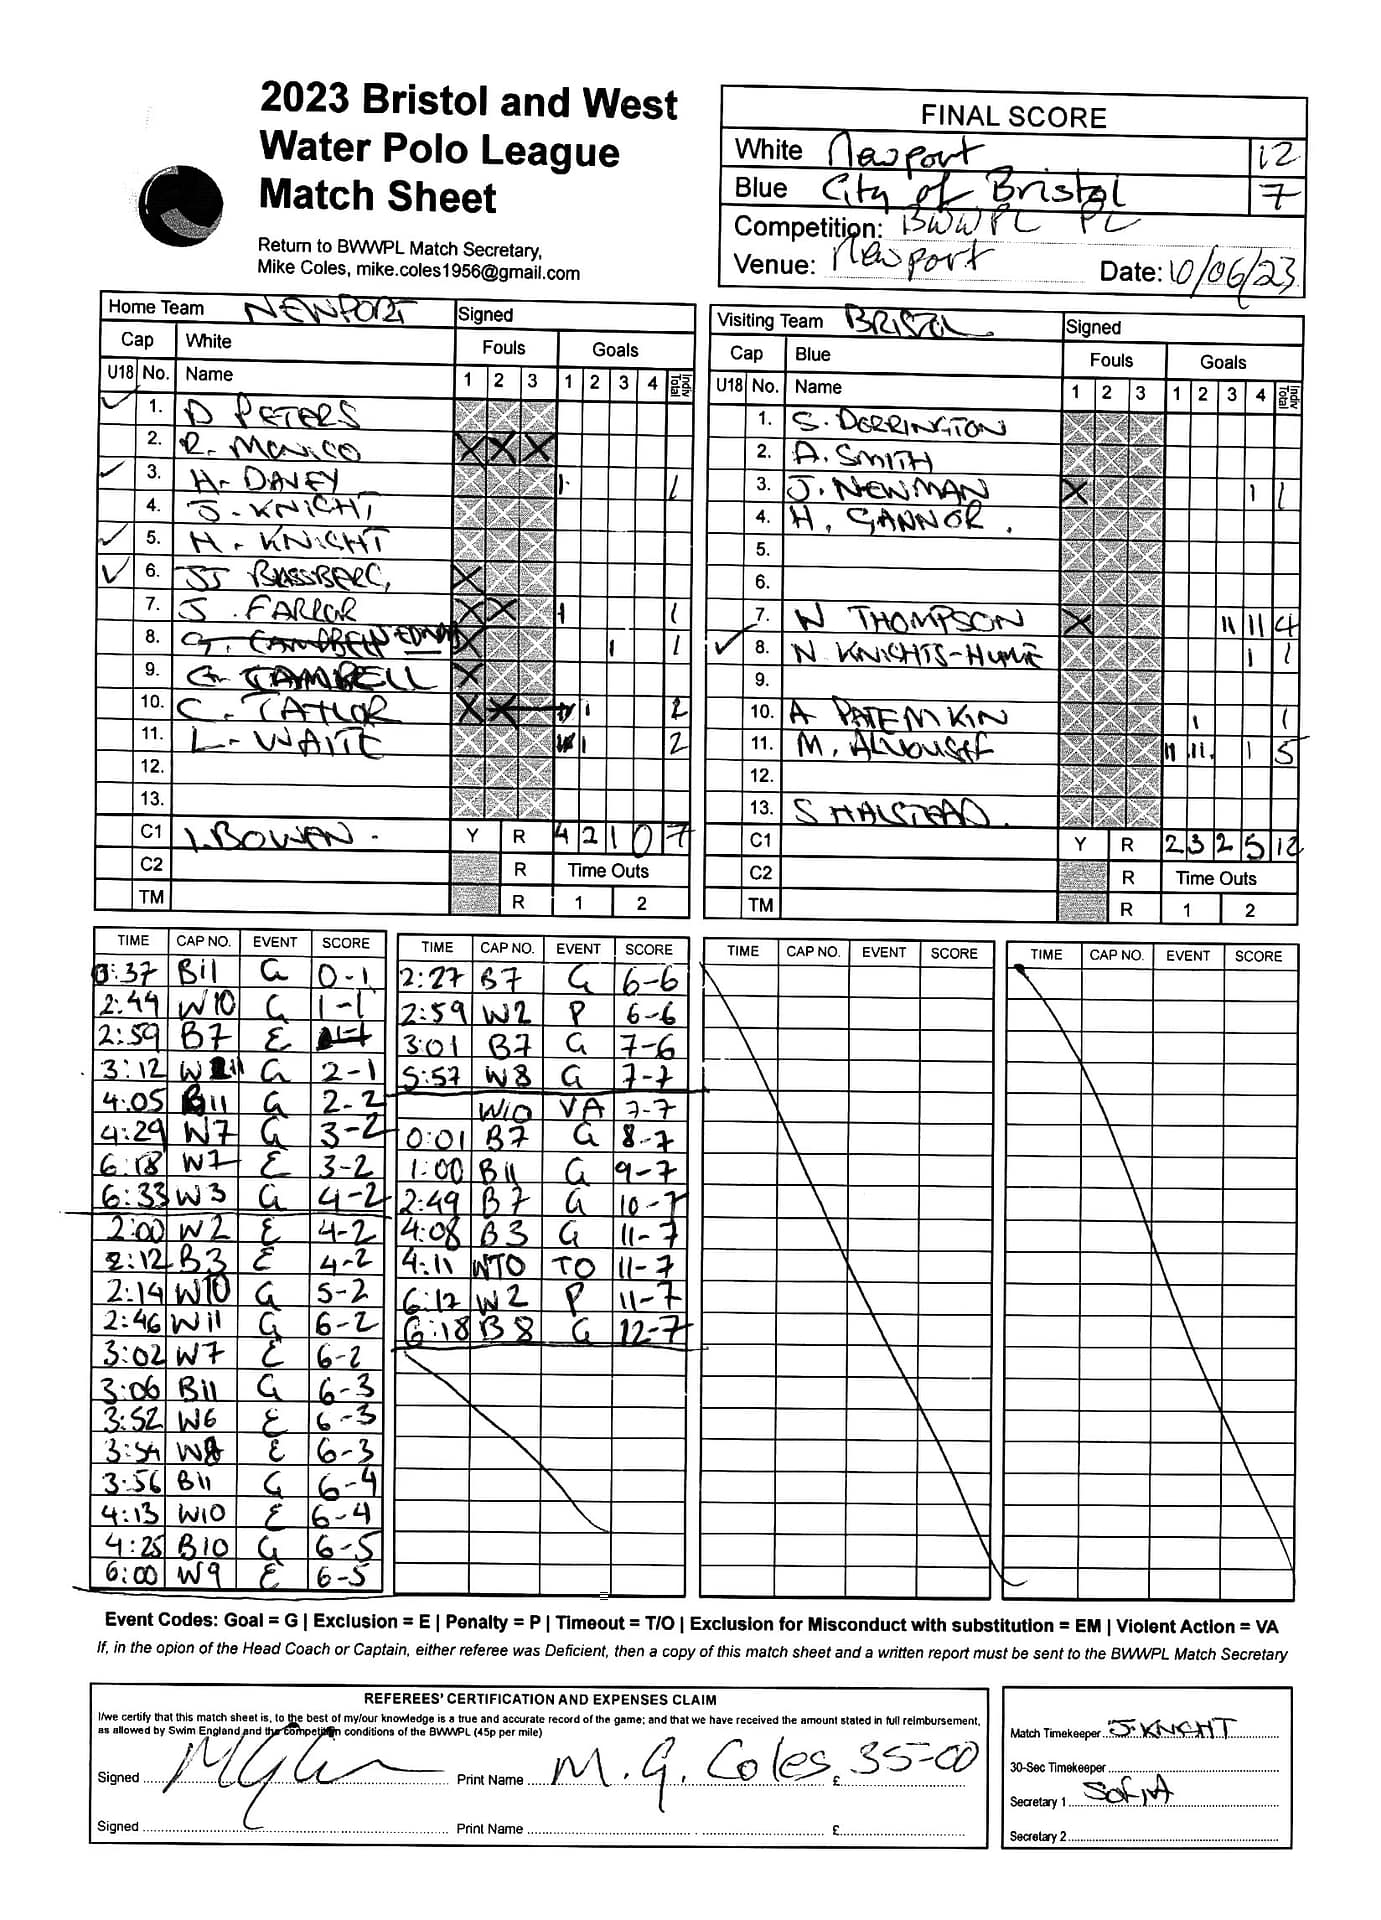 2023 Bristol and West
Water Polo League
Match Sheet
Return to BWWPL Match Secretary,
Mike Coles, mike.coles1956@gmail.com
FINAL SCORE
White Newport 12
Blue City of Bristol 7
Competition: BWWPL PL
Venue: Newport Date: 10/06/23
Home Team NEWPORT Signed
Cap White Fouls Goals
U18 No. Name 1 2 3 1 2 3 4 Indiv Total
✓ 1. D PETERS
2. R. MONICO X X X
✓ 3. H. DAVEY 1 1
4. J. KNIGHT
✓ 5. H. KNIGHT
✓ 6. X
7. S. FARROR X X 1 1
8. G. CAMPBELL X 1 1
9. G. CAMPBELL X
10. C. TAYLOR X X 1 2
11. L. WAITE 1 2
12.
13.
C1 I. BOWEN. Y R 4 2 1 0 7
C2 R Time Outs
TM R 1 2
Visiting Team BRISTOL Signed
Cap Blue Fouls Goals
U18 No. Name 1 2 3 1 2 3 4 Indiv Total
1. S. DERRINGTON
2. A. SMITH
3. J. NEWMAN X 1 1
4. H. GANNOR.
5.
6.
7. N THOMPSON X 11 11 4
✓ 8. N KNIGHTS-HUME 1 1
9.
10. A PATEMKIN 1 1
11. M. ALYOUSEF 11 11. 1 5
12.
13. S HALSTEAD.
C1 Y R 2 3 2 5 12
C2 R Time Outs
TM R 1 2
TIME CAP NO. EVENT SCORE
0:37 B11 G 0-1
2:44 W10 G 1-1
2:59 B7 E
3:12 W11 G 2-1
4:05 B11 G 2-2
4:29 W7 G 3-2
6:18 W7 E 3-2
6:33 W3 G 4-2
2:00 W2 E 4-2
2:12 B3 E 4-2
2:14 W10 G 5-2
2:46 W11 G 6-2
3:02 W7 E 6-2
3:06 B11 G 6-3
3:52 W6 E 6-3
3:54 W8 E 6-3
3:56 B11 G 6-4
4:13 W10 E 6-4
4:25 B10 G 6-5
6:00 W9 E 6-5
TIME CAP NO. EVENT SCORE
2:27 B7 G 6-6
2:59 W2 P 6-6
3:01 B7 G 7-6
5:57 W8 G 7-7
W10 VA 7-7
0:01 B7 G 8-7
1:00 B11 G 9-7
2:49 B7 G 10-7
4:08 B3 G 11-7
4:11 WTO TO 11-7
6:12 W2 P 11-7
6:18 B8 G 12-7
TIME CAP NO. EVENT SCORE
TIME CAP NO. EVENT SCORE
Event Codes: Goal = G | Exclusion = E | Penalty = P | Timeout = T/O | Exclusion for Misconduct with substitution = EM | Violent Action = VA
If, in the opion of the Head Coach or Captain, either referee was Deficient, then a copy of this match sheet and a written report must be sent to the BWWPL Match Secretary
REFEREES' CERTIFICATION AND EXPENSES CLAIM
I/we certify that this match sheet is, to the best of my/our knowledge is a true and accurate record of the game; and that we have received the amount stated in full reimbursement,
as allowed by Swim England and the competition conditions of the BWWPL (45p per mile)
Signed Print Name M. G. Coles £ 35-00
Signed Print Name £
Match Timekeeper J. KNIGHT
30-Sec Timekeeper
Secretary 1 SOFIA
Secretary 2